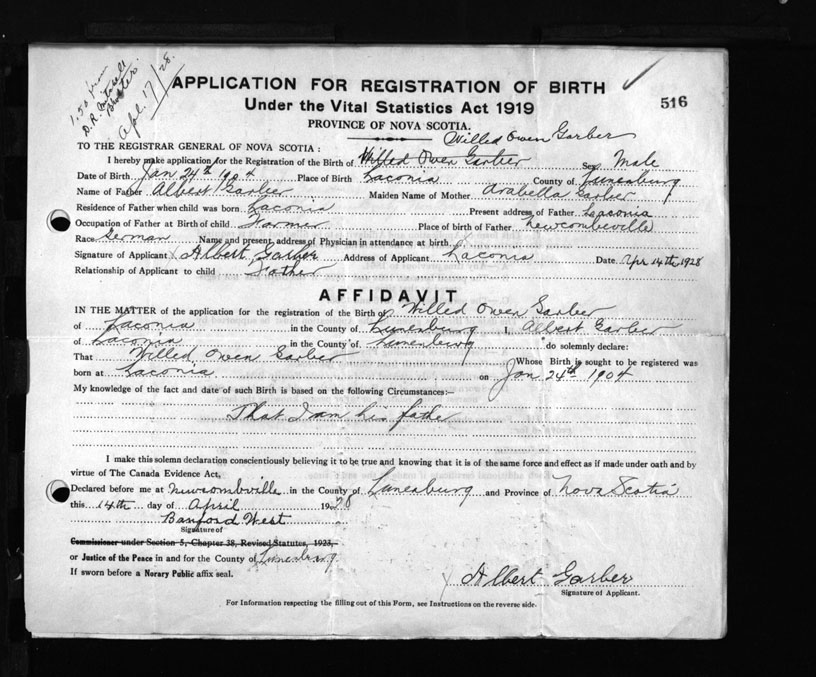 1.50 from
D.R.
Apl. 17/28.
APPLICATION FOR REGISTRATION OF BIRTH
516
Under the Vital Statistics Act 1919
PROVINCE OF NOVA SCOTIA.
Willed Owen Garber
TO THE REGISTRAR GENERAL OF NOVA SCOTIA:
I hereby make application for the Registration of the Birth of Willed Owen Garber Sex Male
Date of Birth Jan 24th 1904 Place of Birth Laconia County of Lunenburg
Name of Father Albert Garber Maiden Name of Mother Arabella Garber
Residence of Father when child was born Laconia Present address of Father Laconia
Occupation of Father at Birth of child Farmer Place of birth of Father Newcombeville
Race German Name and present address of Physician in attendance at birth
Signature of Applicant Albert Garber Address of Applicant Laconia Date Apr 14th 1928
Relationship of Applicant to child Father
AFFIDAVIT
IN THE MATTER of the application for the registration of the Birth of Willed Owen Garber
of Laconia in the County of Lunenburg I, Albert Garber
of Laconia in the County of Lunenburg do solemnly declare:
That Willed Owen Garber Whose Birth is sought to be registered was
born at Laconia on Jan 24th 1904
My knowledge of the fact and date of such Birth is based on the following Circumstances:—
That I am his father
I make this solemn declaration conscientiously believing it to be true and knowing that it is of the same force and effect as if made under oath and by
virtue of The Canada Evidence Act,
Declared before me at Newcombville in the County of Lunenburg and Province of Nova Scotia
this 14th day of April 1928
Banford West
Signature of
Commissioner under Section 5, Chapter 38, Revised Statutes, 1923,
or Justice of the Peace in and for the County of Lunenburg
If sworn before a Notary Public affix seal.
Albert Garber
Signature of Applicant.
For Information respecting the filling out of this Form, see Instructions on the reverse side.